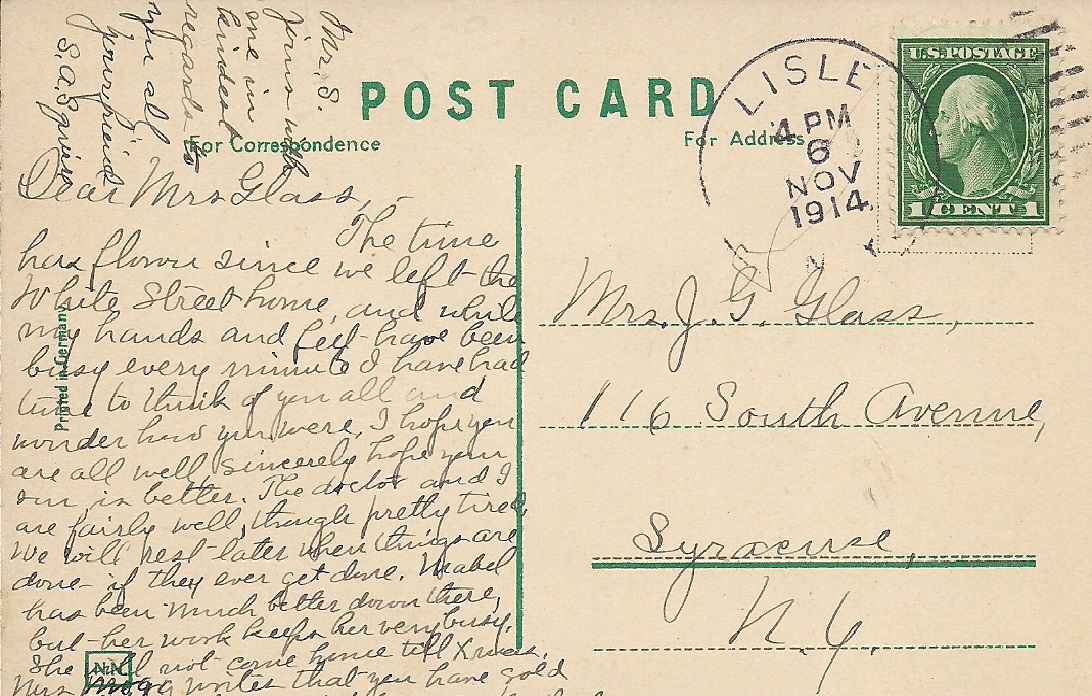 POST CARD
For Correspondence
For Address
LISLE
4 PM
6
NOV
1914
N Y
U.S. POSTAGE
1 CENT 1
Dear Mrs Glass, -
The time
has flown since we left the
White Street home, and while
my hands and feet have been
busy every minute I have had
time to think of you all and
wonder how you were, I hope you
are all well, sincerely hope your
son is better. The doctor and I
are fairly well, though pretty tired,
We will rest later when things are
done - if they ever get done. Mabel
has been much better down there,
but her work keeps her very busy.
She will not come home till Xmas.
Mrs Mogg writes that you have sold
Mr. S.
joins with
me in
kindest
regards to
you all
your friend
S. A. Squires
Printed in Germany
NN
Mrs. J. G. Glass,
116 South Avenue,
Syracuse,
N. Y.